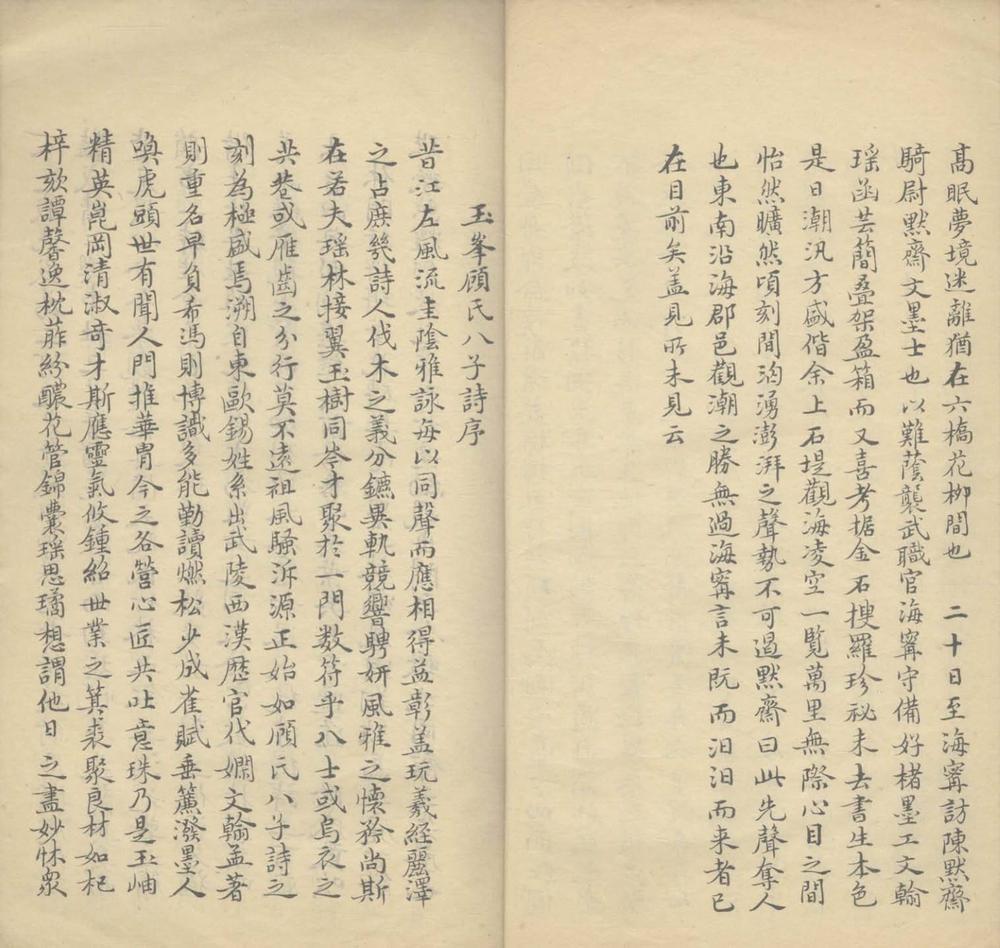 高眠夢境迷離猶在六橋花柳間也　二十日至海寗訪陳默齋
騎尉默齋文墨士也以難蔭襲武職官海寗守備好楮墨工文翰
瑶函芸簡叠架盈箱而又喜考据金石搜羅珍祕未去書生本色
是日潮汛方盛偕余上石堤觀海凌空一覽萬里無際心目之間
怡然曠然頃刻間洶湧澎湃之聲勢不可遏默齋曰此先聲奪人
也東南沿海郡邑觀潮之勝無過海寗言未旣而汨汨而来者已
在目前矣盖見所未見云
玉峯顧氏八子詩序
昔江左風流圭陰雅詠每以同聲而應相得益彰盖玩羲經麗澤
之占庶幾詩人伐木之義分鑣異軌競響聘妍風雅之懷矜尚斯
在若夫瑶林接翼玉樹同岑才聚於一門数符乎八士或烏衣之
共巷或雁齒之分行莫不遠祖風騷泝源正始如顧氏八子詩之
刻為極盛焉溯自東歐錫姓系出武陵西漢歴官代嫻文翰孟著
則重名早負希馮則博識多能勤讀燃松少成雀賦垂簾潑墨人
喚虎頭世有聞人門推華胄今之各營心匠共吐意珠乃是玉岫
精英崑岡清淑奇才斯應靈氣攸鍾紹世業之箕裘聚良材如杞
梓欬譚馨逸枕葄紛醲花管錦囊瑶思璚想謂他日之盡妙怵衆